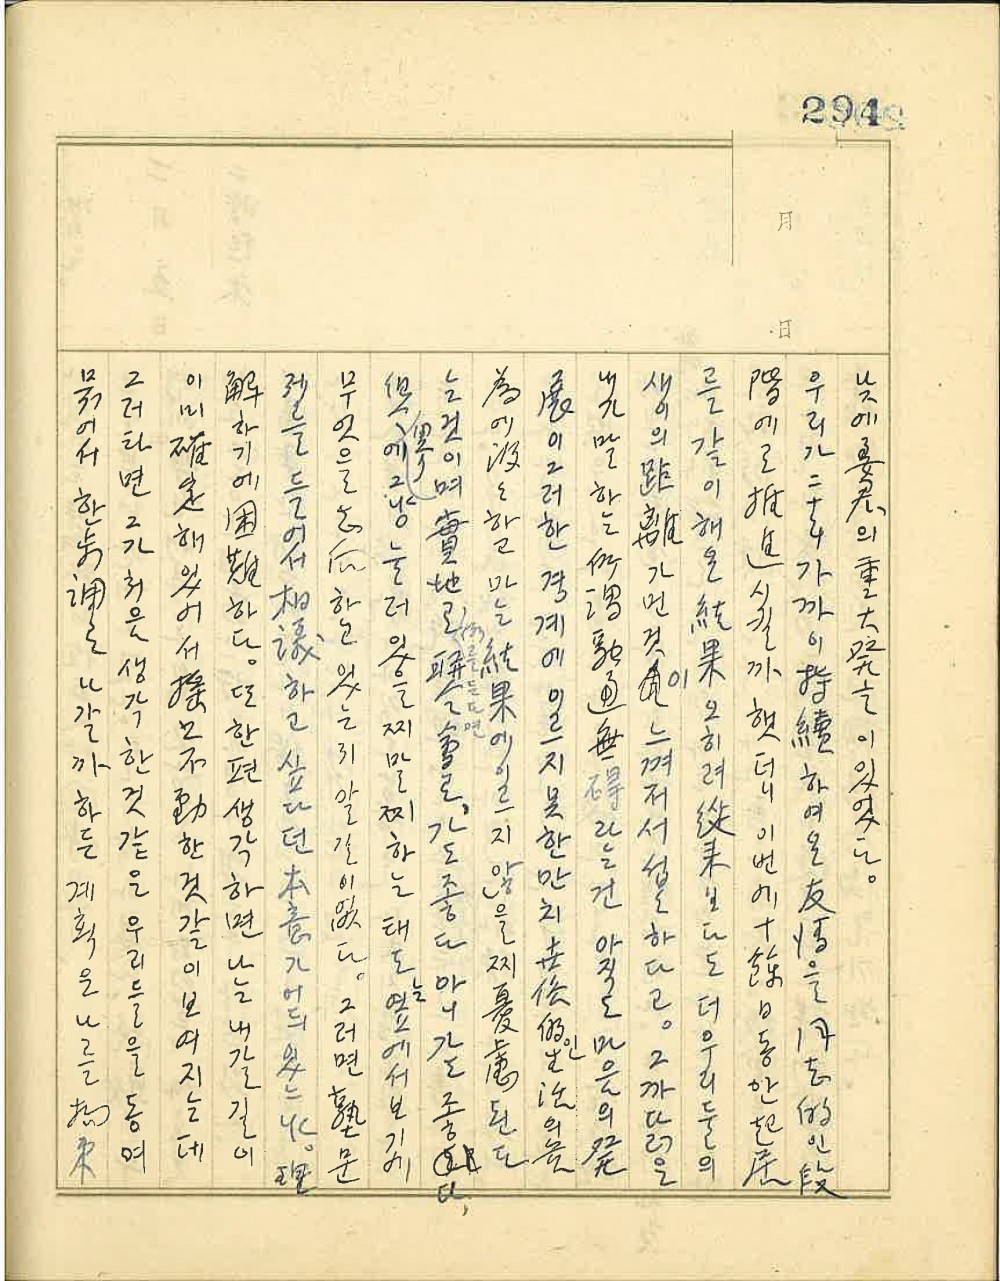 294
月
日
낮에 姜君의 重大発言이 있었다。
우리가 二十年 가까이 持續하여온 友情을 同志的인 段
階에로 推進시킬까 했더니 이번에 十餘日동안 起居
를 같이해온 結果 오히려 從來보다도 더 우리들의
생이의 距離가 먼것이 느껴저서 섭섭하다고。 그까닭은
내가 말하는 所謂 融通無碍라는건 아직도 마음의 発
展이 그러한 경계에 이르지 못한만치 世俗的인 生活의 無
為에 汲汲하고 마는 結果에 이르지 않을찌 憂慮된다
는것이며 實地로 例를 들드면 가도좋다 아니가도 좋다,
에 그냥 눌러 있을찌 말찌 하는 태도는 옆에서 보기에
무엇을 하고 있는지 알길이 없다。 그러면 塾문
제를 들어서 相議하고 싶다던 本意가 어듸 있느냐。 理
解하기에 困難하다。 또 한편 생각하면 나는 내갈길이
이미 確定해 있어서 搖모不動한것 같이 보여지는데
그러타면 그가 처음 생각한것 같은 우리들을 동여
묶어서 한 步調로 나갈까 하든 계획은 나를 拘束